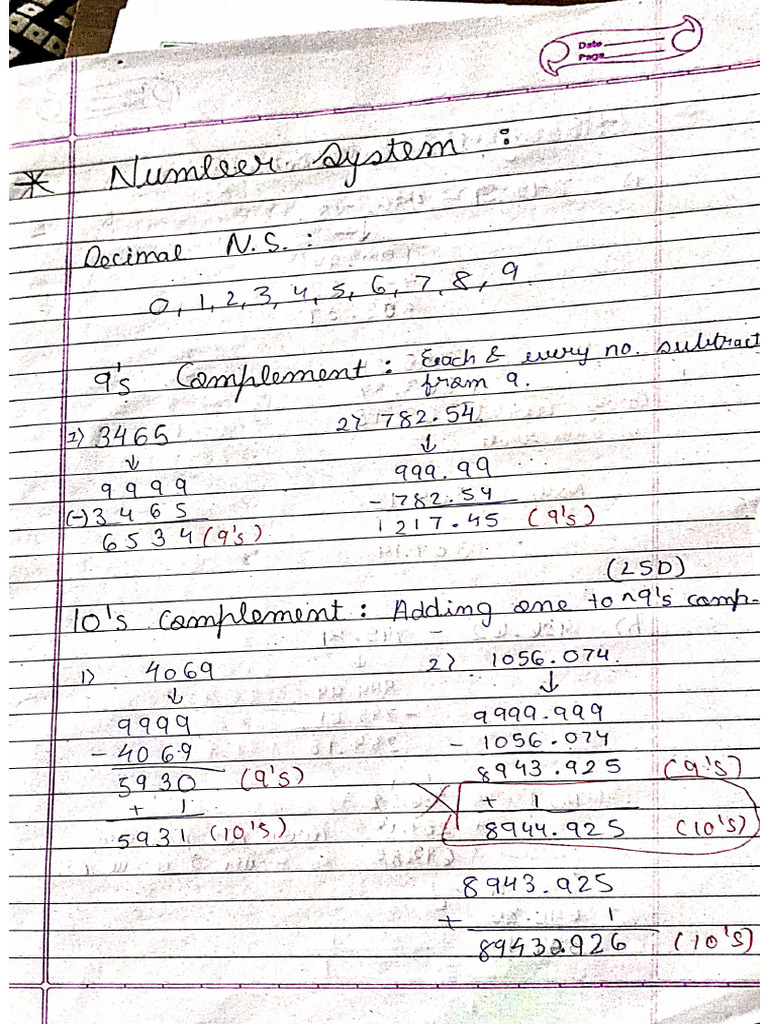 Date
Page
* Number System :
Decimal N.S. :
0, 1, 2, 3, 4, 5, 6, 7, 8, 9
9's Complement : Each & every no. subtract
from 9.
1) 3465 2) 782.54
↓ ↓
9999 999.99
(-) 3465 - 782.54
6534 (9's) 217.45 (9's)
(LSD)
10's complement : Adding one to ^ 9's comp-
1) 4069 2) 1056.074
↓ ↓
9999 9999.999
- 4069 - 1056.074
5930 (9's) 8943.925 (9's)
+ 1 + 1
5931 (10's) 8944.925 (10's)
8943.925
+ 1
8943.926 (10's)